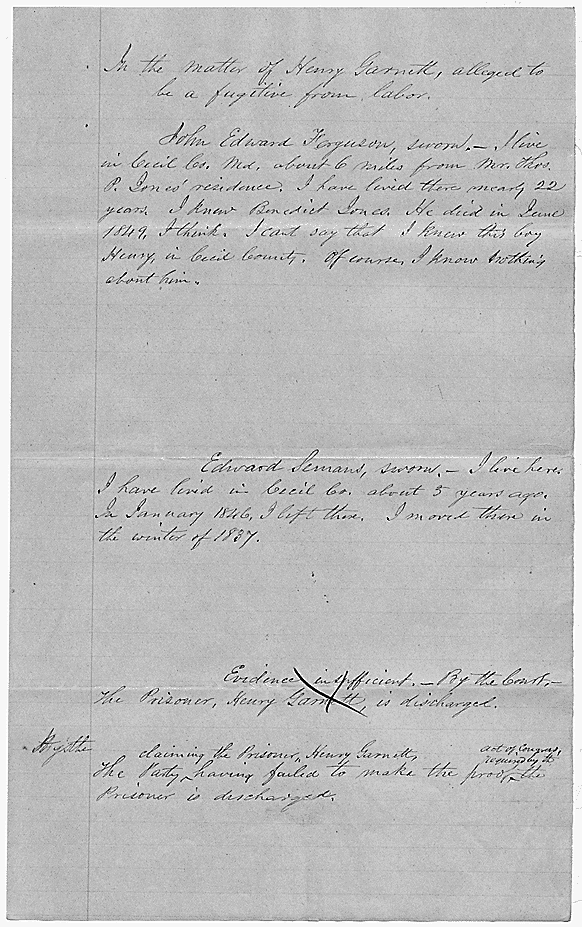 In the matter of Henry Garnett, alleged to
be a fugitive from labor.
John Edward Ferguson, sworn. — I live
in Cecil Co. Md. about 6 miles from Mr. Thos.
P. Jones' residence. I have lived there nearly 22
years. I knew Benedict Jones. He died in June
1849, I think. I cant say that I knew this boy
Henry, in Cecil County. Of course, I know nothing
about him.
Edward Semans, sworn. — I live here.
I have lived in Cecil Co. about 5 years ago.
In January 1846, I left there. I moved there in
the winter of 1837.
Evidence insufficient. — By the Court. —
The Prisoner, Henry Garnett, is discharged.
By the
claiming the Prisoner, Henry Garnett,
act of Congress,
required by the
The Party having failed to make the proof the
Prisoner is discharged.